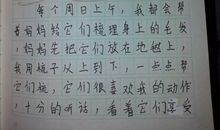 每个周日上午，我都会帮
着妈妈给它们梳理身上的毛发，
妈妈先把它们放在地板上，
我用梳子从上到下，一点点帮
它们梳，它们很喜欢我的动作
十分的听话，看着它们享受